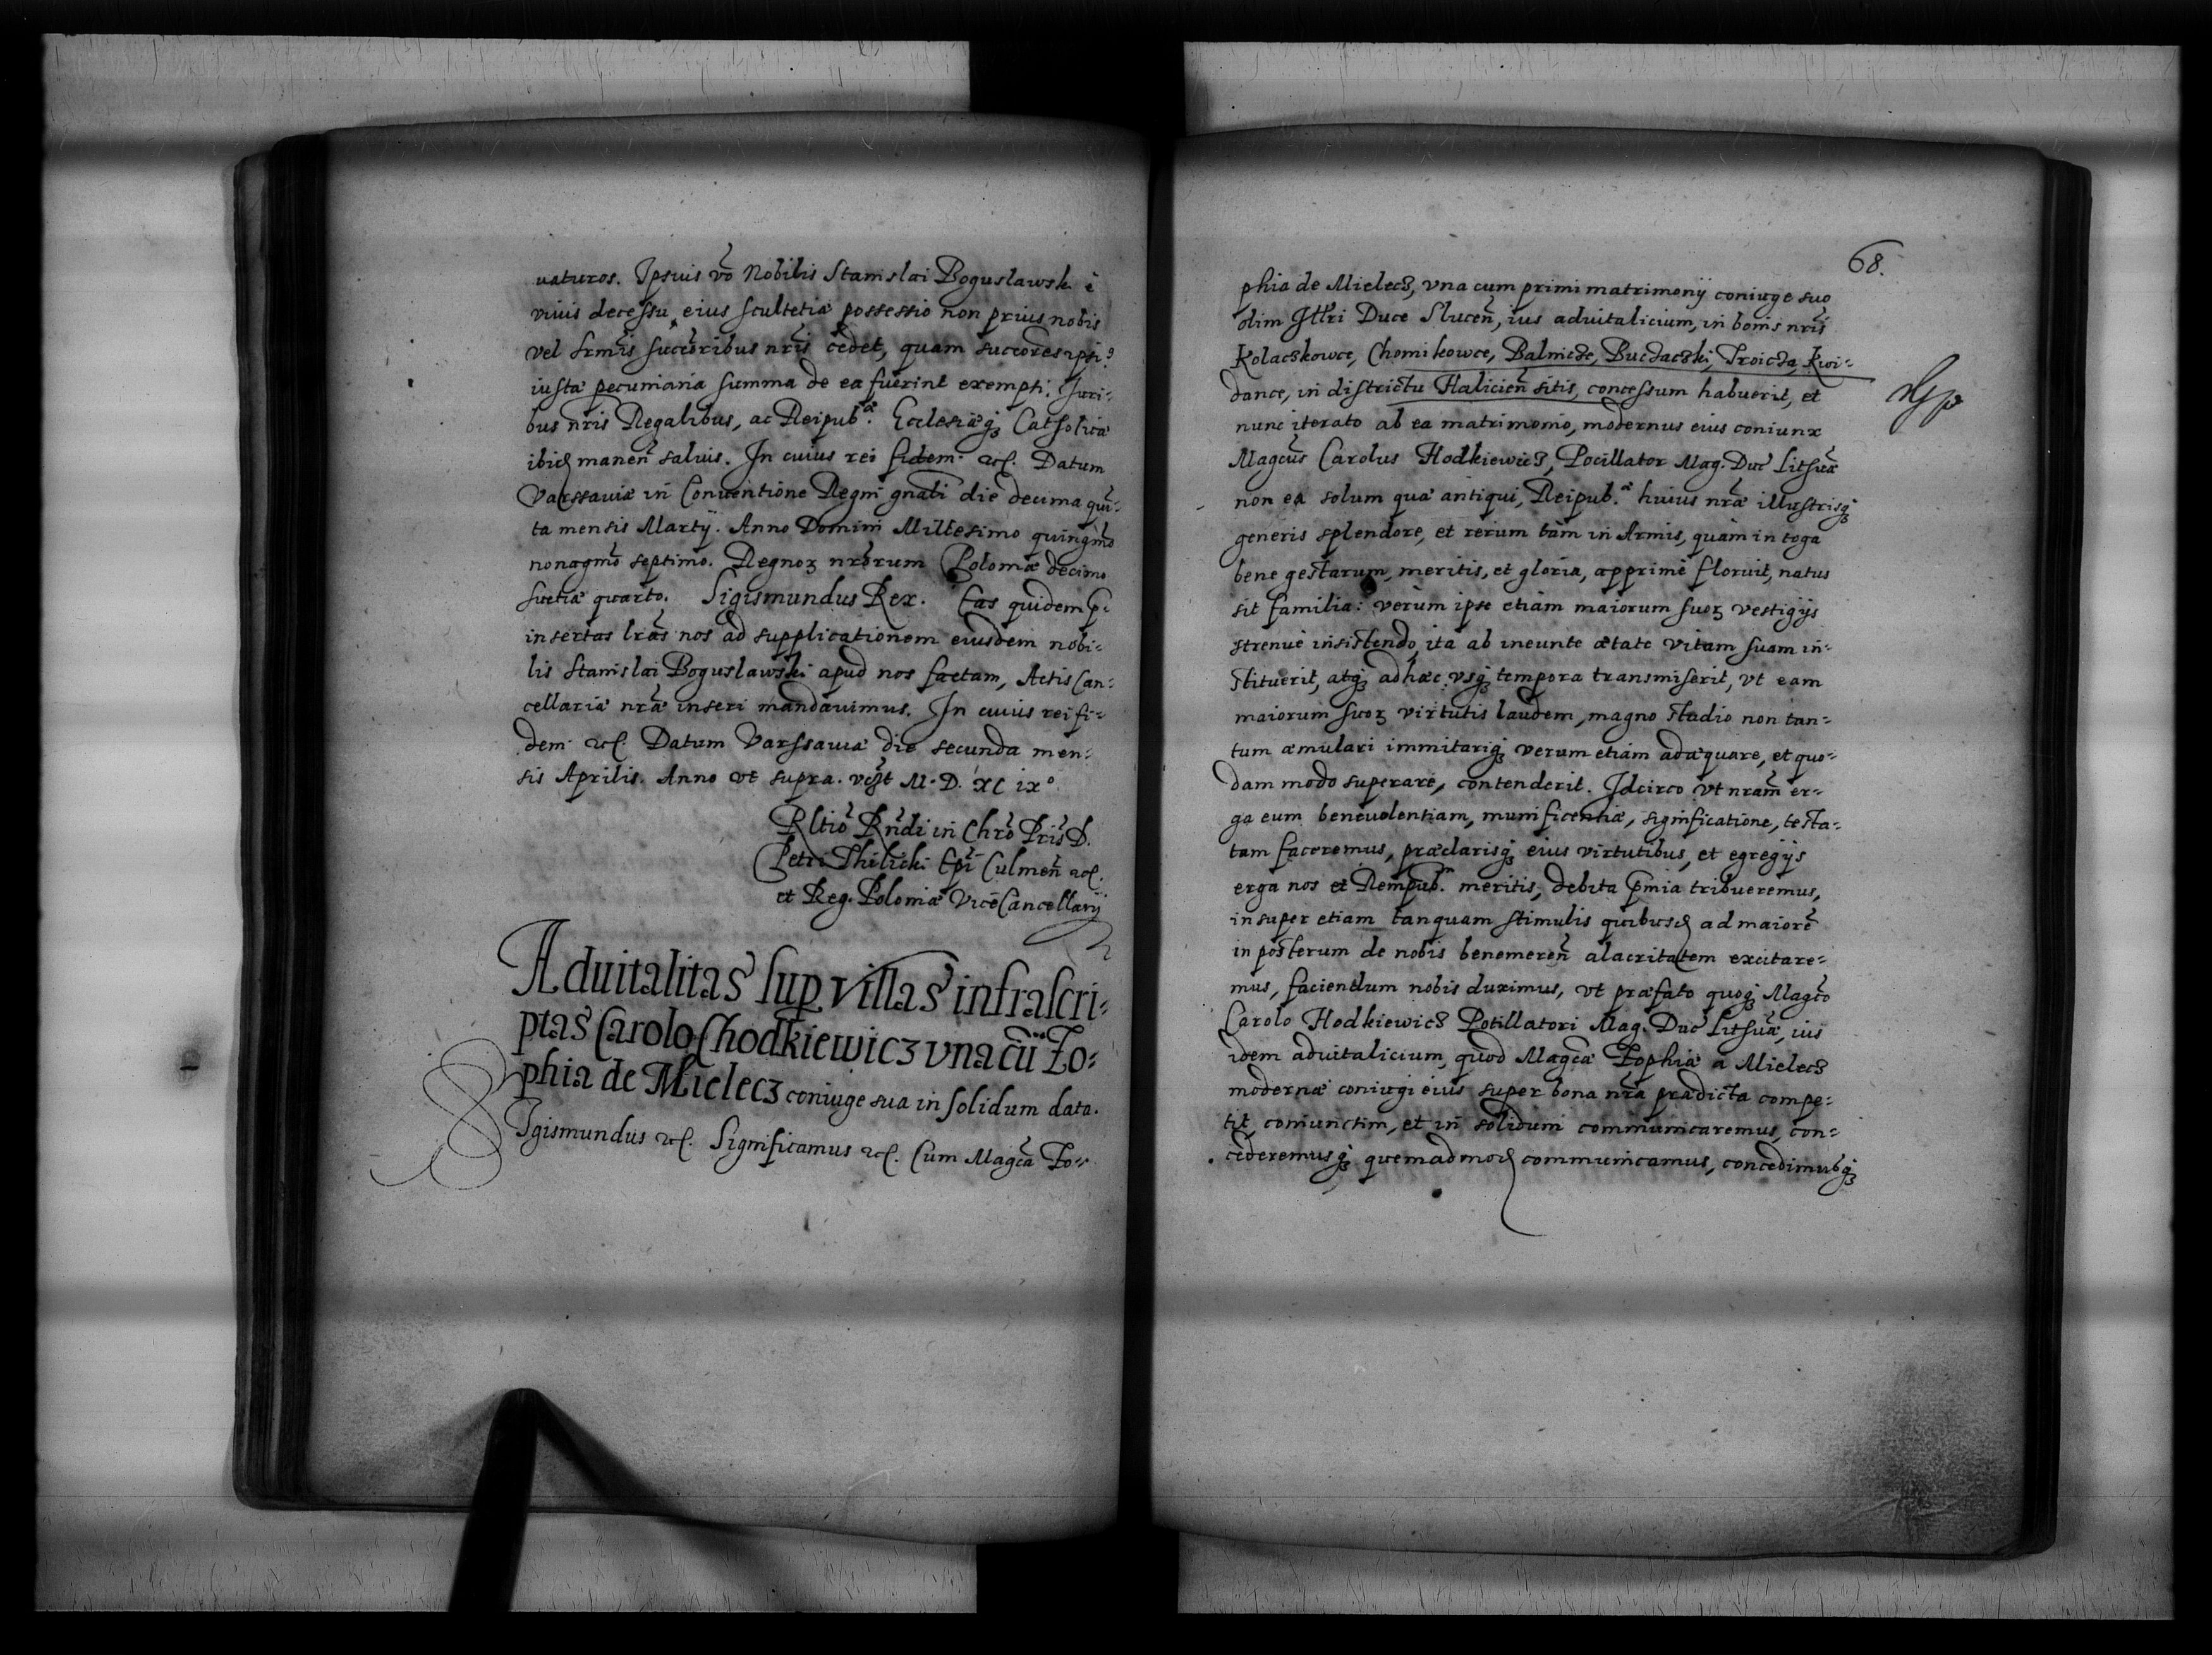 uaturos. Ipsius vō Nobilis Stanislai Boguslawski è
viuis decessu, eius scultetiæ possessio non prius nobis
vel Srmis succōribus nrīs cedet, quam succōres ipsi9
iusta pecuniaria summa de ea fuerint exempti: Iuri-
bus nrīs Regalibus, ac Reipub.æ Ecclesiæq₃ Catholicæ
ibid manen̄ saluis. In cuius rei fidem. etc. Datum
Varssauiæ in Conuentione Regni gnāli die decima quī-
ta mensis Martÿ. Anno Domini Millesimo quingmō
nonagmō septimo. Regnoꝝ nrōrum Poloniæ decimo
Suetiæ quarto. Sigismundus Rex. Eas quidem p̄-
insertas lrās nos ad supplicationem eiusdem nobi-
lis Stanislai Boguslawski apud nos factam, Actis Can-
cellariæ nrǣ inseri mandauimus. In cuius rei fi-
dem. etc. Datum Varssauiæ die secunda men-
sis Aprilis. Anno vt supra. M. D. XC ix°
Rltiō Rn̄di in Chrō Pris D.
Petri Thilicki Epī Culmen̄ etc.
et Reg. Poloniæ ViceCancellarÿ
Aduitalitas sup villas infrascri-
ptas Carolo Chodkiewicz vna cū Zo-
phia de Mielecz coniuge sua in solidum data.
SIgismundus etc. Significamus etc. Cum Magcā Zo-
68.
phia de Mielecz, vna cum primi matrimonÿ coniuge suo
olim Illri Duce Slucen̄, ius aduitalicium, in bonis nrīs
Kolaczkowce, Chomikowce, Balincze, Buczaczki, Troicza, Kwi-
dance, in districtu Halicien̄ sitis, concessum habuerit, et
nunc iterato ab ea matrimonio, modernus eius coniunx
Magcūs Carolus Hodkiewicz, Pocillator Mag. Duc̄ Lithuǣ
non ea solum quæ antiqui, Reipub.æ huius nrǣ illustrisq₃
generis splendore, et rerum tàm in Armis, quàm in toga
bene gestarum, meritis, et gloria, apprimè floruit, natus
sit familia: verùm ipse etiam maiorum suoꝝ vestigÿs
strenuè insistendo, ita ab ineunte ætate vitam suam in-
stituerit, atq₃ adhæc vsq₃ tempora transmiserit, vt eam
maiorum suoꝝ virtutis laudem, magno studio non tan-
tum æmulari immitariq₃ verum etiam adæquare, et quo-
dam modo superare, contenderit. Idcirco vt nrām er-
ga eum beneuolentiam, munificentiæ, significatione, testa-
tam faceremus, præclarisq₃ eius virtutibus, et egregÿs
erga nos et Rempub. meritis, debita p̄mia tribueremus,
insuper etiam tanquam stimulis quibusd ad maiorē
in posterum de nobis benemeren̄ alacritatem excitare-
mus, faciendum nobis duximus, vt præfato quoq₃ Magcō
Carolo Hodkiewicz Potillatori Mag. Duc̄ Lithuǣ, ius
idem aduitalicium, quod Magcǣ Zophiæ a Mielecz
modernæ coniugi eius super bona nrā prædicta compe-
tit, coniunctim, et in solidum communicaremus, con-
cederemusq₃ quemadmod communicamus, concedimusq₃